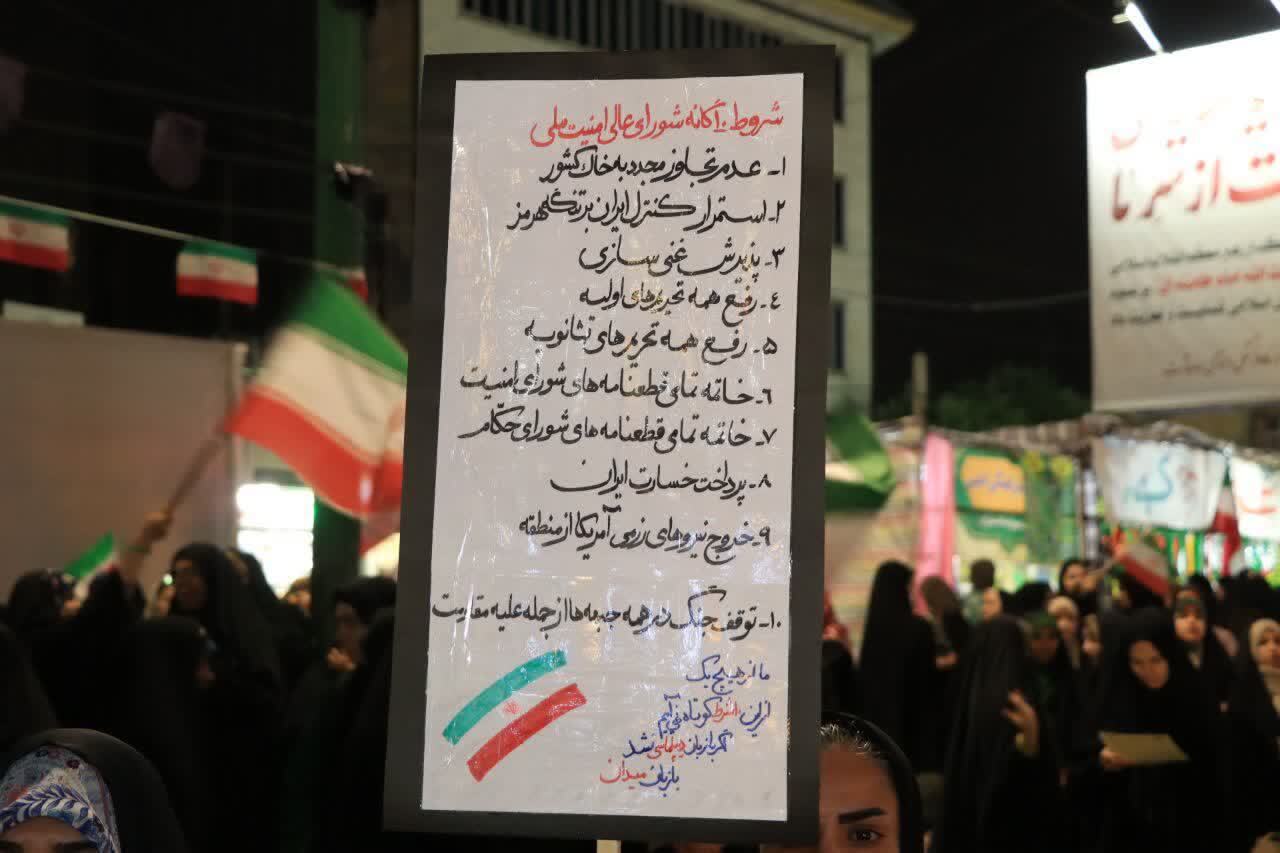 شروط ۱۰گانه شورای عالی امنیت ملی
۱- عدم تجاوز مجدد به خاک کشور
۲- استمرار کنترل ایران بر تنگه هرمز
۳- پذیرش غنی سازی
٤- رفع همه تحریم‌های اولیه
۵- رفع همه تحریم‌های ثانویه
۶- خاتمه تمامی قطعنامه های شورای امنیت
۷- خاتمه تمامی قطعنامه های شورای حکام
۸- پرداخت خسارت ایران
۹- خروج نیروهای رزمی آمریکا از منطقه
۱۰- توقف جنگ در همه جبهه ها از جمله علیه مقاومت
ما از هیچ یک
از این ۱۰شرط کوتاه نمی‌آییم
گر با زبان دیپلماسی نشد
با زبان میدان
ت از سر ما